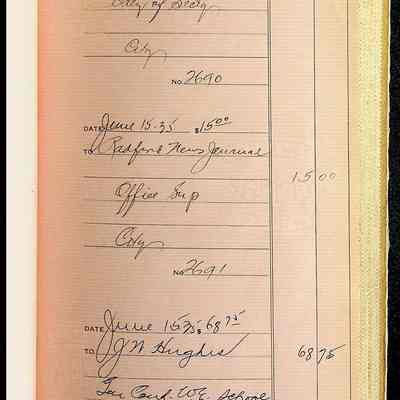 City of Bedg
City
NO. 2690
DATE June 15-35 $15.00
TO Radford News Journal
15 00
Office Sup
City
NO. 2691
DATE June 15 35 $68.75
TO J W Hughes
68 75
For Cond. W.E. School